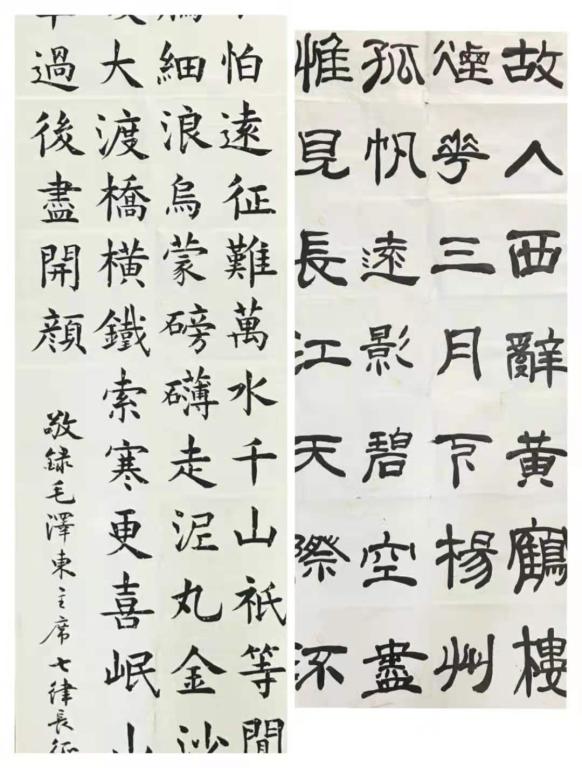 故人西辭黄鶴樓
煙花三月下楊州
孤帆遠影碧空盡
惟見長江天際流
怕遠征難萬水千山祇等間
細浪烏蒙磅礴走泥丸金沙
大渡橋橫鐵索寒更喜岷山
過後盡開顏
敬録毛澤東主席七律長征